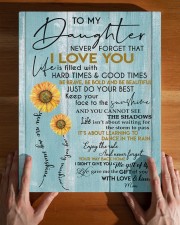 TO MY
Daughter
NEVER FORGET THAT
I LOVE YOU
Life is filled with
HARD TIMES & GOOD TIMES
BE BRAVE, BE BOLD AND BE BEAUTIFUL
JUST DO YOUR BEST
Keep your
face to the sunshine
AND YOU CANNOT SEE
THE SHADOWS
Life isn't about waiting for
the storm to pass
IT'S ABOUT LEARNING TO
DANCE IN THE RAIN
Enjoy the ride
And never forget
YOUR WAY BACK HOME
I DIDN'T GIVE YOU the gift of life
Life gave me the GIFT of you
WITH LOVE
Mom